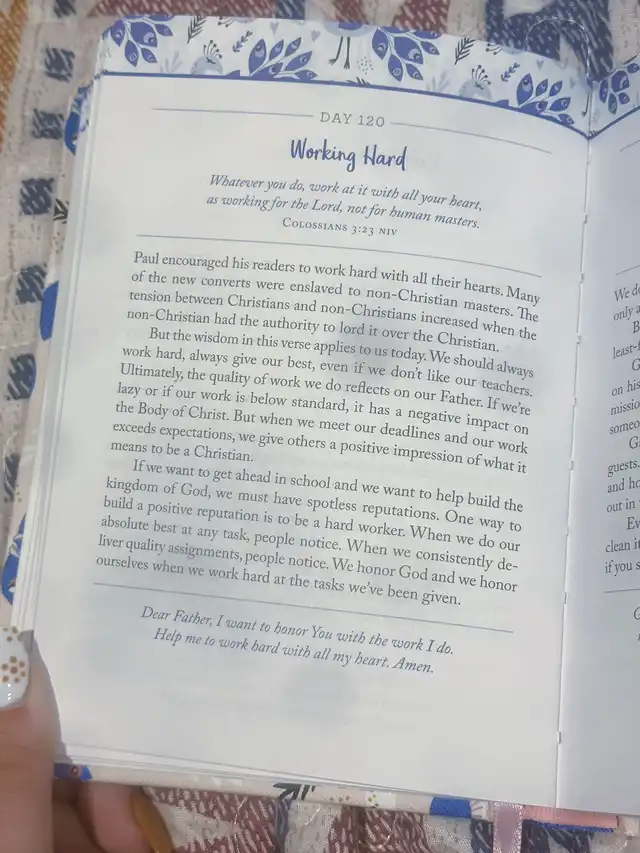 DAY 120
Working Hard
Whatever you do, work at it with all your heart,
as working for the Lord, not for human masters.
COLOSSIANS 3:23 NIV
Paul encouraged his readers to work hard with all their hearts. Many
of the new converts were enslaved to non-Christian masters. The
tension between Christians and non-Christians increased when the
non-Christian had the authority to lord it over the Christian.
But the wisdom in this verse applies to us today. We should always
work hard, always give our best, even if we don't like our teachers.
Ultimately, the quality of work we do reflects on our Father. If we're
lazy or if our work is below standard, it has a negative impact on
the Body of Christ. But when we meet our deadlines and our work
exceeds expectations, we give others a positive impression of what it
means to be a Christian.
If we want to get ahead in school and we want to help build the
kingdom of God, we must have spotless reputations. One way to
build a positive reputation is to be a hard worker. When we do our
absolute best at any task, people notice. When we consistently de-
liver quality assignments, people notice. We honor God and we honor
ourselves when we work hard at the tasks we've been given.
Dear Father, I want to honor You with the work I do.
Help me to work hard with all my heart. Amen.
We do
only a
least-
on his
missio
someo
guests.
and ho
out in
Ev
clean it
if you s